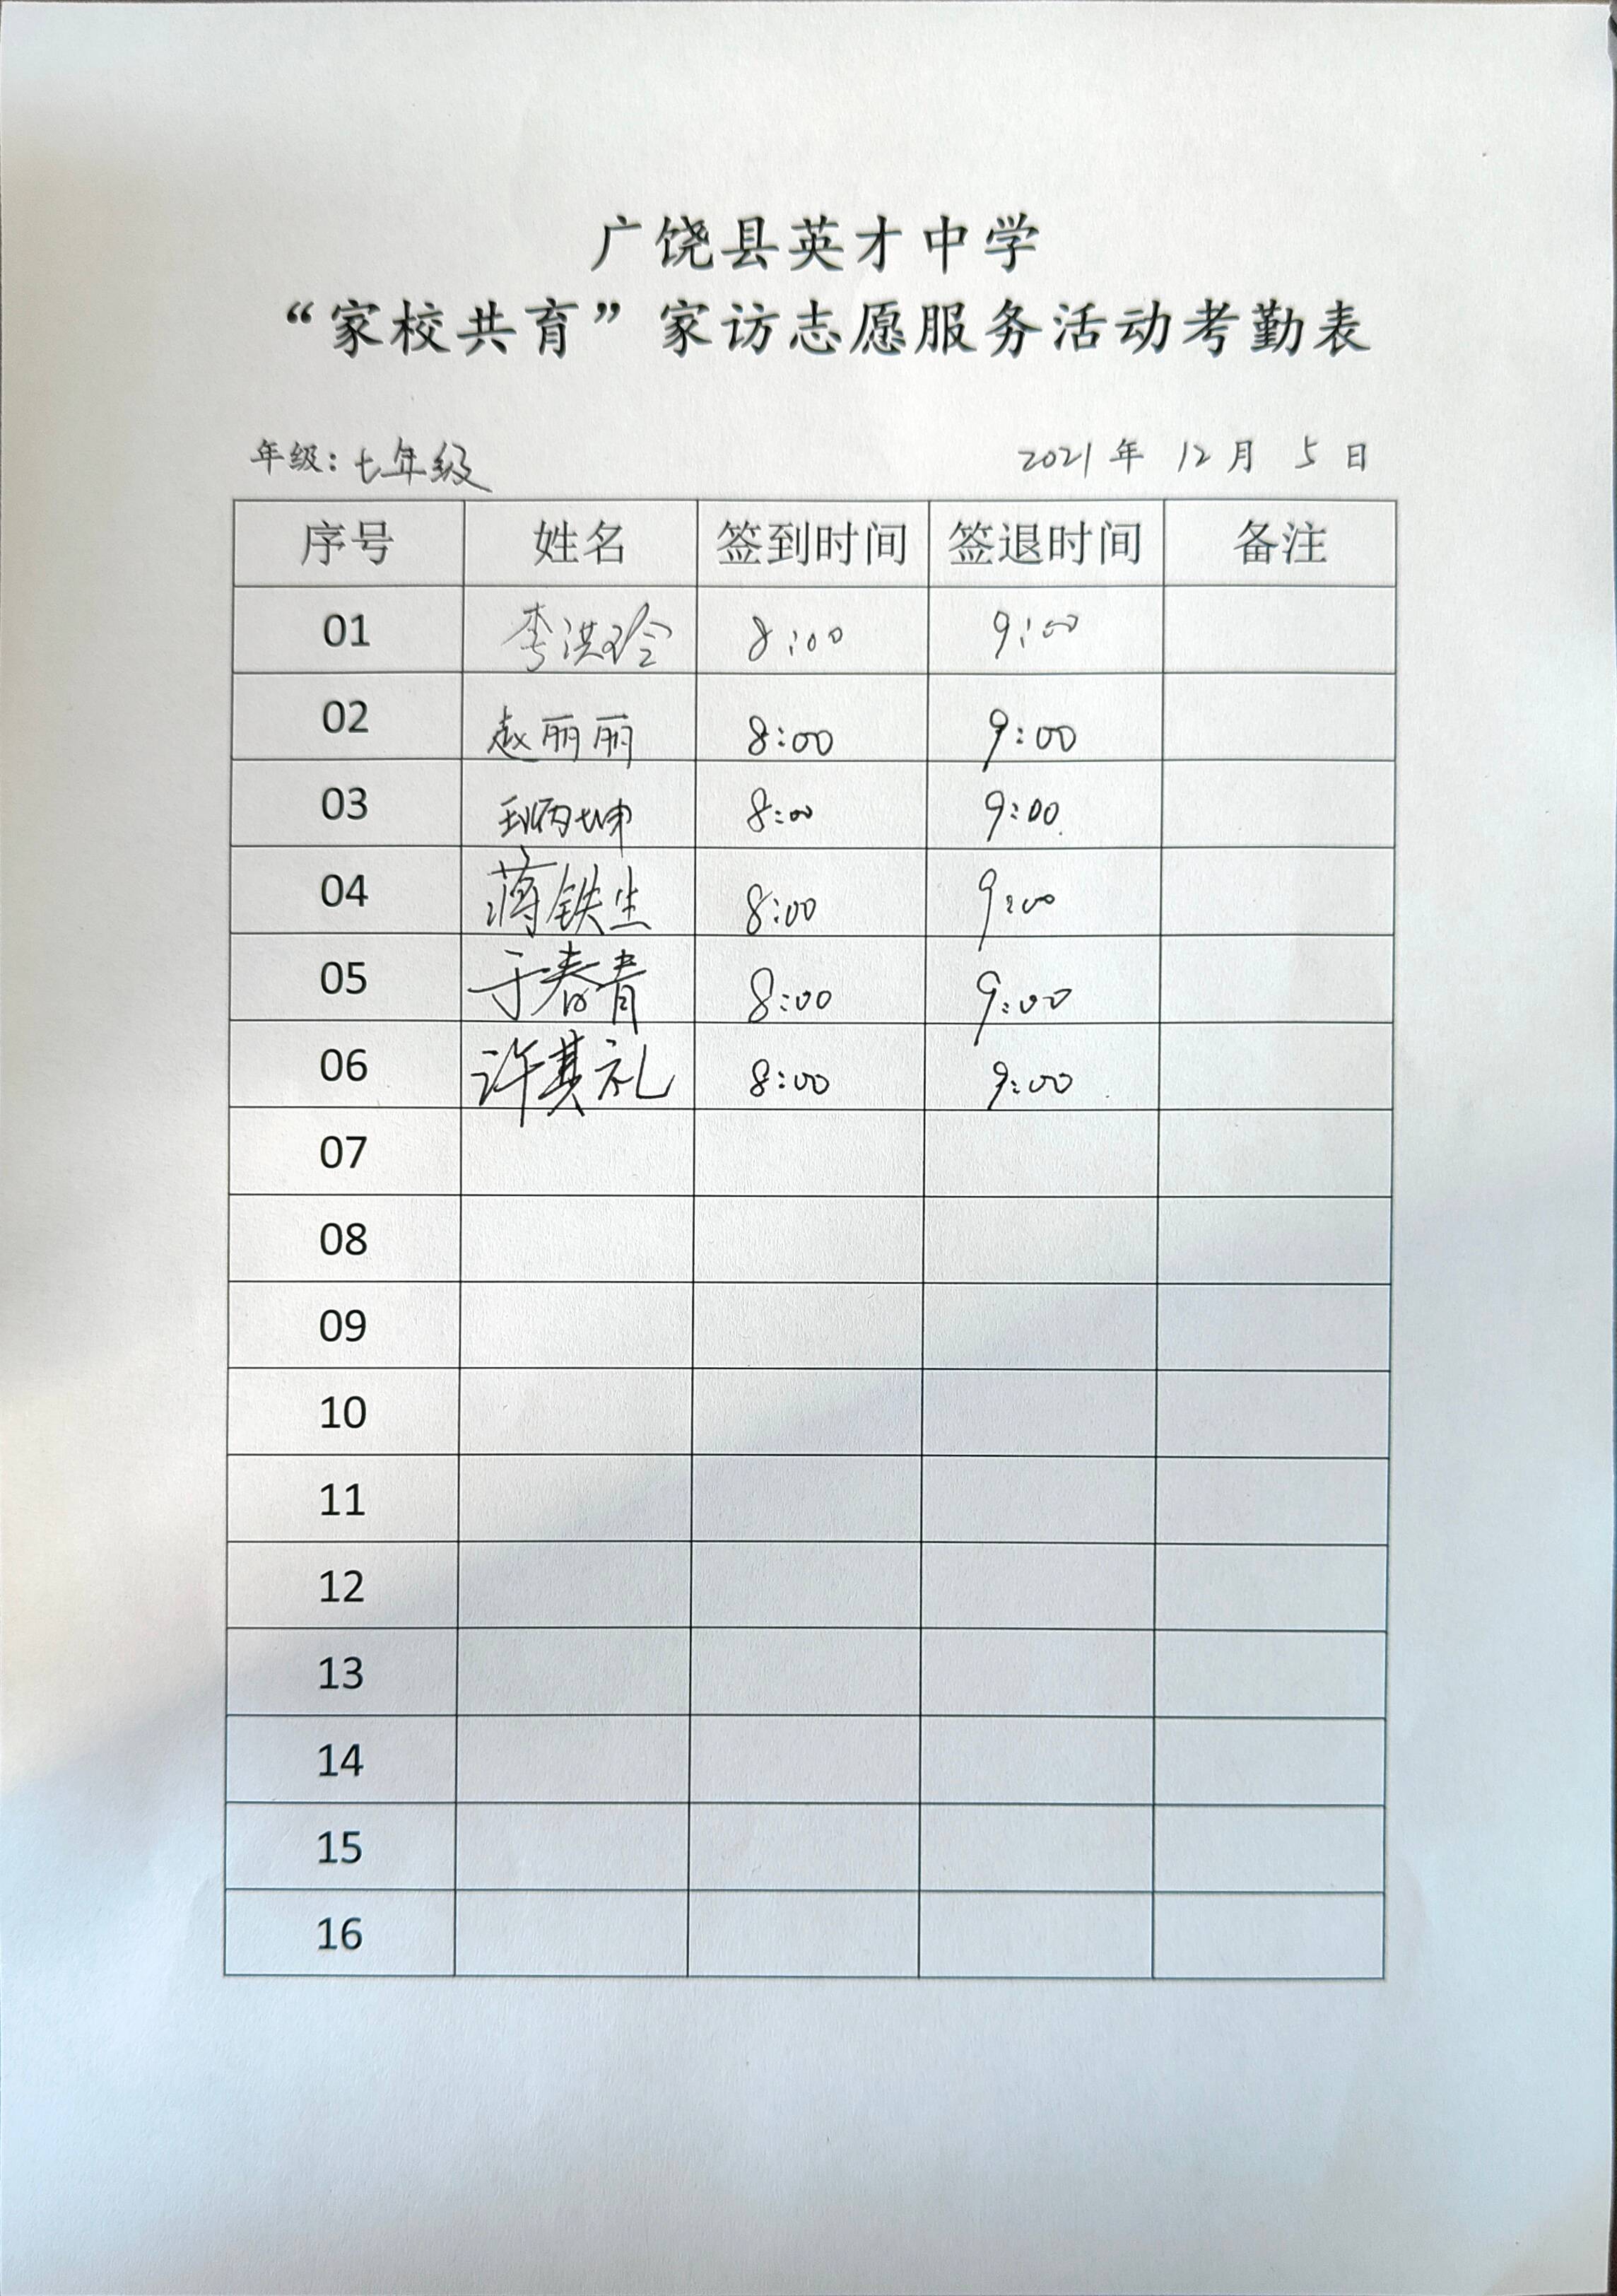 广饶县英才中学
“家校共育”家访志愿服务活动考勤表
年级：七年级 2021年 12月 5日
序号 姓名 签到时间 签退时间 备注
01 李洪玲 8:00 9:00
02 赵丽丽 8:00 9:00
03 8:00 9:00
04 蒋铁生 8:00 9:00
05 于春青 8:00 9:00
06 许其礼 8:00 9:00
07
08
09
10
11
12
13
14
15
16